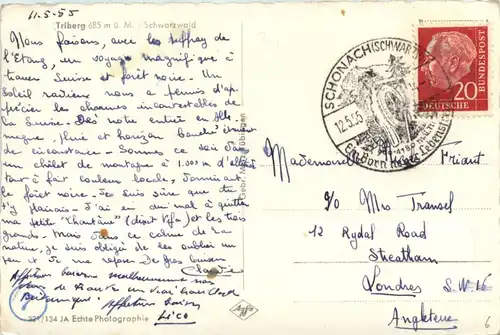 11.5.55
Triberg 685 m ü. M. Schwarzwald
Nous faisons, avec les
l'Etang, un voyage magnifique à
travers Suisse et forêt noire. Un
soleil radieux nous a permis d'ap-
précier les charmes incontestables de
la Suisse. Dès notre entrée en Alle-
magne, pluie et horizon bouché
de circonstance. Sommes ce soir dans
un châlet de montagne à 1.000 m d'altitude
tout à fait couleur locale, dominant
la forêt noire. Je suis sûre que tu
t'y plairais. J'ai eu du mal à quitter
ma petite "Chantane" (disait) et les trois
grands. Mais dans ce calme de la
nature, je suis obligée de les oublier un
peu et de me reposer. De gros baisers
Claude
Affectueux baisers
Affectueux baisers
Lico
321/134 JA Echte Photographie
Agfa
Gebr. Metz Tübingen
SCHONACH (SCHWARZW
12.5.55
Ein Born neuer Lebens
DEUTSCHE BUNDESPOST
20
Mademoiselle Friant
c/o Mrs Transel
12 Rydal Road
Streatham
Londres S.W.16
Angleterre